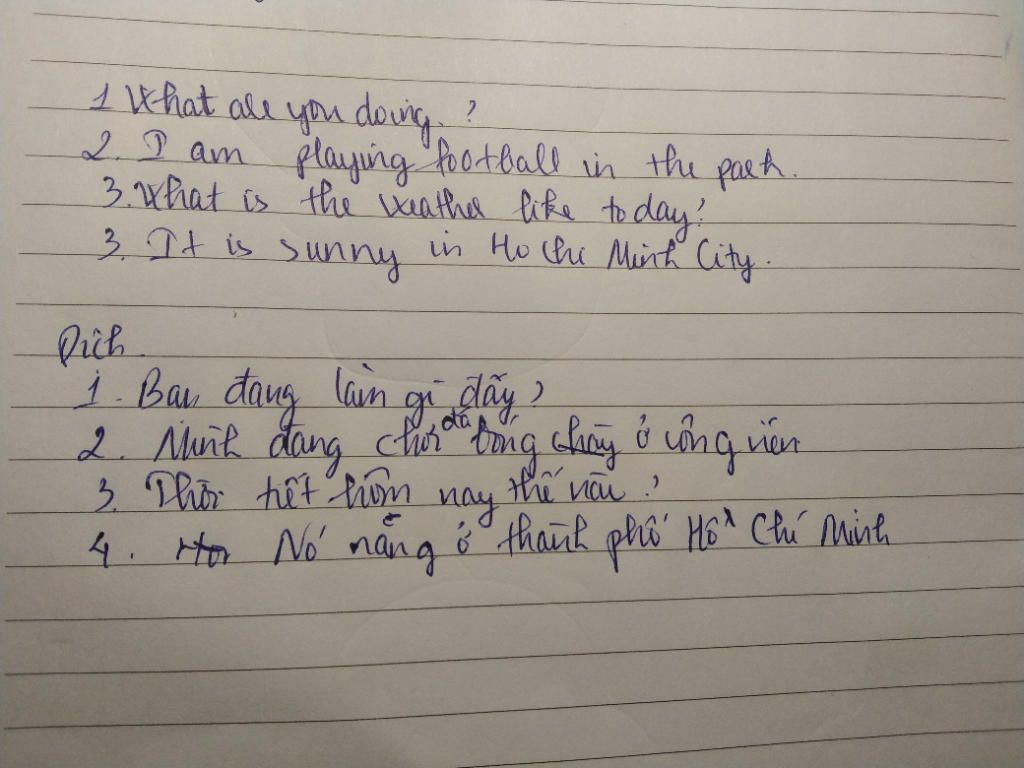 1 What are you doing.?
2. I am playing football in the park.
3. What is the weather like today?
3. It is sunny in Ho Chi Minh City.
Dịch
1. Bạn đang làm gì đấy?
2. Mình đang chơi đá bóng chày ở công viên
3. Thời tiết hôm nay thế nào?
4. Nó nắng ở thành phố Hồ Chí Minh